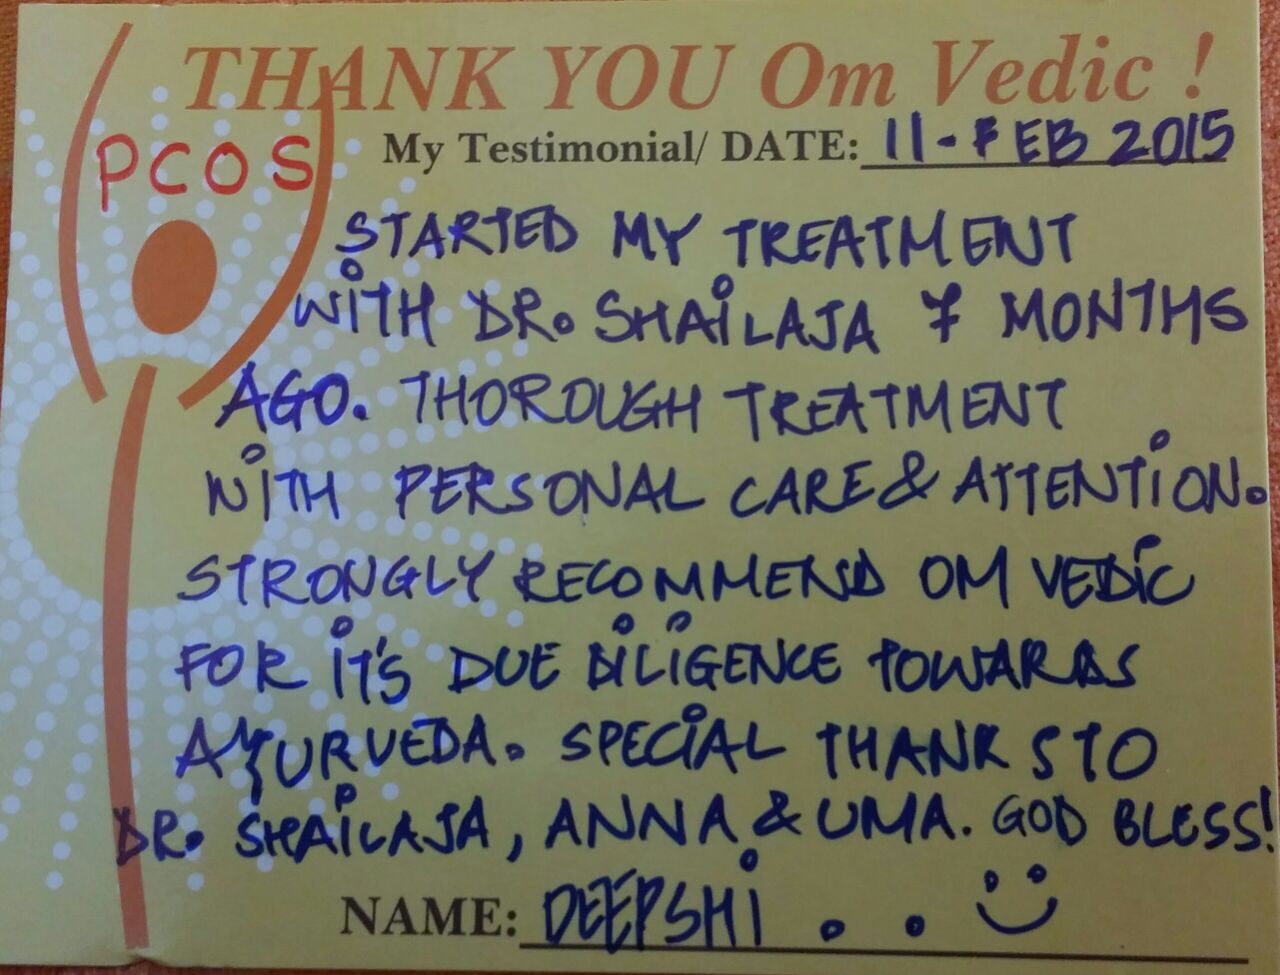 THANK YOU Om Vedic !
My Testimonial/ DATE: 11-FEB 2015
PCOS
STARTED MY TREATMENT
WITH DR. SHAILAJA 7 MONTHS
AGO. THOROUGH TREATMENT
WITH PERSONAL CARE & ATTENTION.
STRONGLY RECOMMEND OM VEDIC
FOR IT'S DUE DILIGENCE TOWARDS
AYURVEDA. SPECIAL THANKS TO
DR. SHAILAJA, ANNA & UMA. GOD BLESS!
NAME: DEEPSHI . .